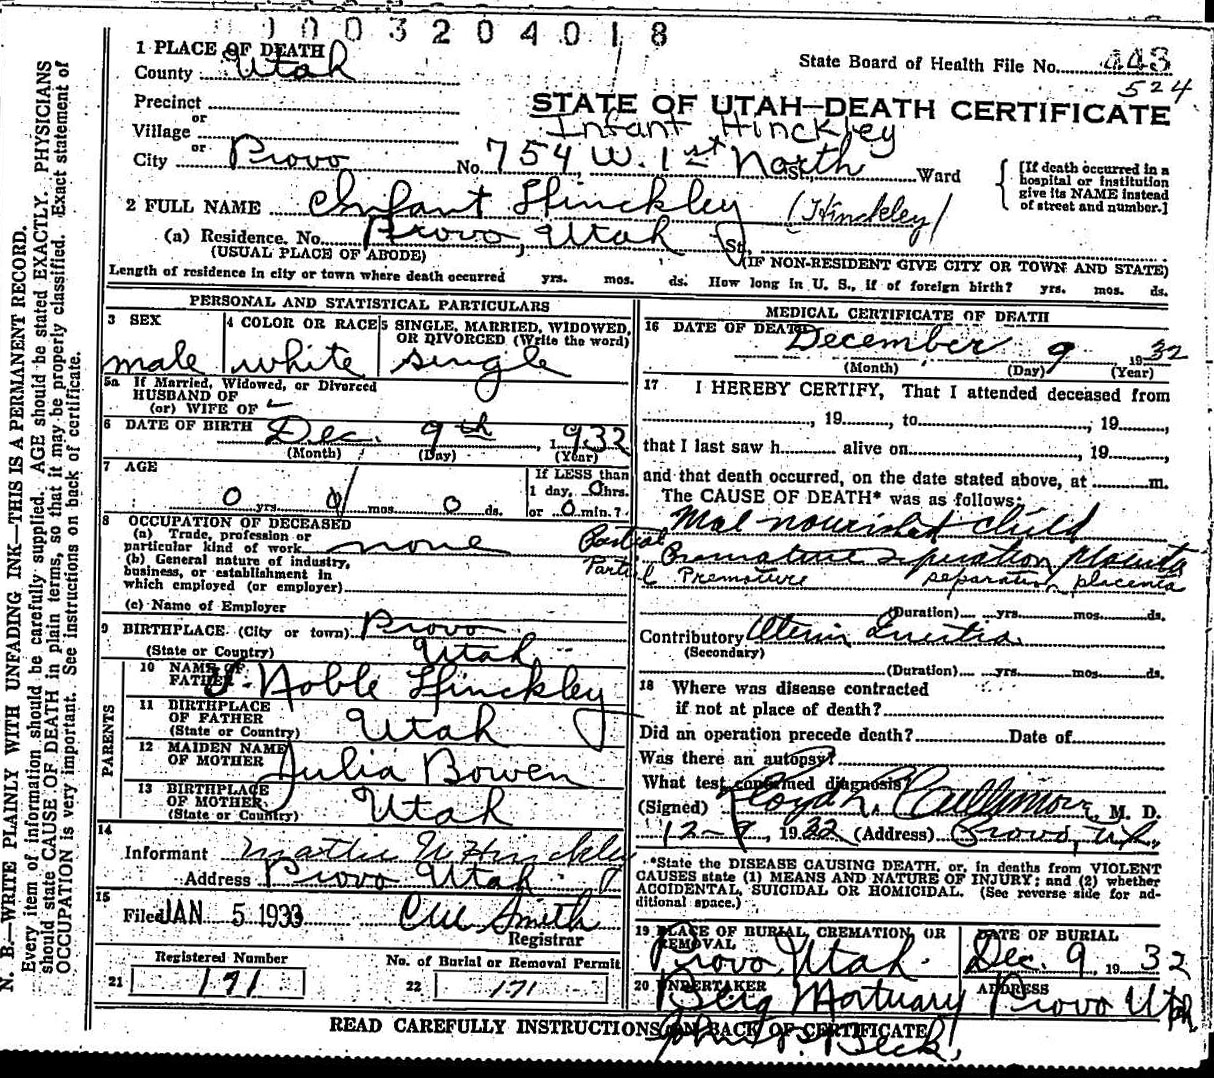 1003204018
1 PLACE OF DEATH
County Utah
State Board of Health File No. 443
524
Precinct
or
Village
or
STATE OF UTAH—DEATH CERTIFICATE
Infant Hinckley
City Provo No. 754 W. 1st North St., Ward
[If death occurred in a hospital or institution give its NAME instead of street and number.]
2 FULL NAME Infant Hinckley (Hinckley)
(a) Residence. No. Provo, Utah St.
(USUAL PLACE OF ABODE) (IF NON-RESIDENT GIVE CITY OR TOWN AND STATE)
Length of residence in city or town where death occurred yrs. mos. ds. How long in U. S., if of foreign birth? yrs. mos. ds.
PERSONAL AND STATISTICAL PARTICULARS
3 SEX
male
4 COLOR OR RACE
white
5 SINGLE, MARRIED, WIDOWED, OR DIVORCED (Write the word)
single
5a If Married, Widowed, or Divorced
HUSBAND OF
(or) WIFE OF
6 DATE OF BIRTH Dec. 9th, 1932
(Month) (Day) (Year)
7 AGE
0 yrs. 0 mos. 0 ds.
If LESS than
1 day, 0 hrs.
or 0 min.?
8 OCCUPATION OF DECEASED
(a) Trade, profession or
particular kind of work none
(b) General nature of industry,
business, or establishment in
which employed (or employer)
(c) Name of Employer
9 BIRTHPLACE (City or town) Provo
(State or Country) Utah
PARENTS
10 NAME OF
FATHER Noble Hinckley
11 BIRTHPLACE
OF FATHER
(State or Country) Utah
12 MAIDEN NAME
OF MOTHER Julia Bowen
13 BIRTHPLACE
OF MOTHER
(State or Country) Utah
14
Informant Hinckley
Address Provo Utah
15
Filed JAN 5 1933 Smith
Registrar
Registered Number
21 171
No. of Burial or Removal Permit
22 171
MEDICAL CERTIFICATE OF DEATH
16 DATE OF DEATH
December 9 1932
(Month) (Day) (Year)
17 I HEREBY CERTIFY, That I attended deceased from
, 19, to, 19,
that I last saw h alive on, 19,
and that death occurred, on the date stated above, at m.
The CAUSE OF DEATH* was as follows:
Mal nourished child
Partial Premature seperation placenta
Partial Premature separation placenta
(Duration) yrs. mos. ds.
Contributory Uterin Inertia
(Secondary)
(Duration) yrs. mos. ds.
18 Where was disease contracted
if not at place of death?
Did an operation precede death? Date of
Was there an autopsy?
What test confirmed diagnosis?
(Signed) Lloyd L. Cullimore, M. D.
12-9, 1932 (Address) Provo, Ut.
*State the DISEASE CAUSING DEATH, or, in deaths from VIOLENT
CAUSES state (1) MEANS AND NATURE OF INJURY; and (2) whether
ACCIDENTAL, SUICIDAL OR HOMICIDAL. (See reverse side for ad-
ditional space.)
19 PLACE OF BURIAL, CREMATION, OR
REMOVAL
Provo, Utah.
DATE OF BURIAL
Dec. 9, 1932
20 UNDERTAKER ADDRESS
Berg Mortuary Provo Utah
READ CAREFULLY INSTRUCTIONS ON BACK OF CERTIFICATE
Beck,
N. B.—WRITE PLAINLY WITH UNFADING INK—THIS IS A PERMANENT RECORD.
Every item of information should be carefully supplied. AGE should be stated EXACTLY. PHYSICIANS
should state CAUSE OF DEATH in plain terms, so that it may be properly classified. Exact statement of
OCCUPATION is very important. See instructions on back of certificate.